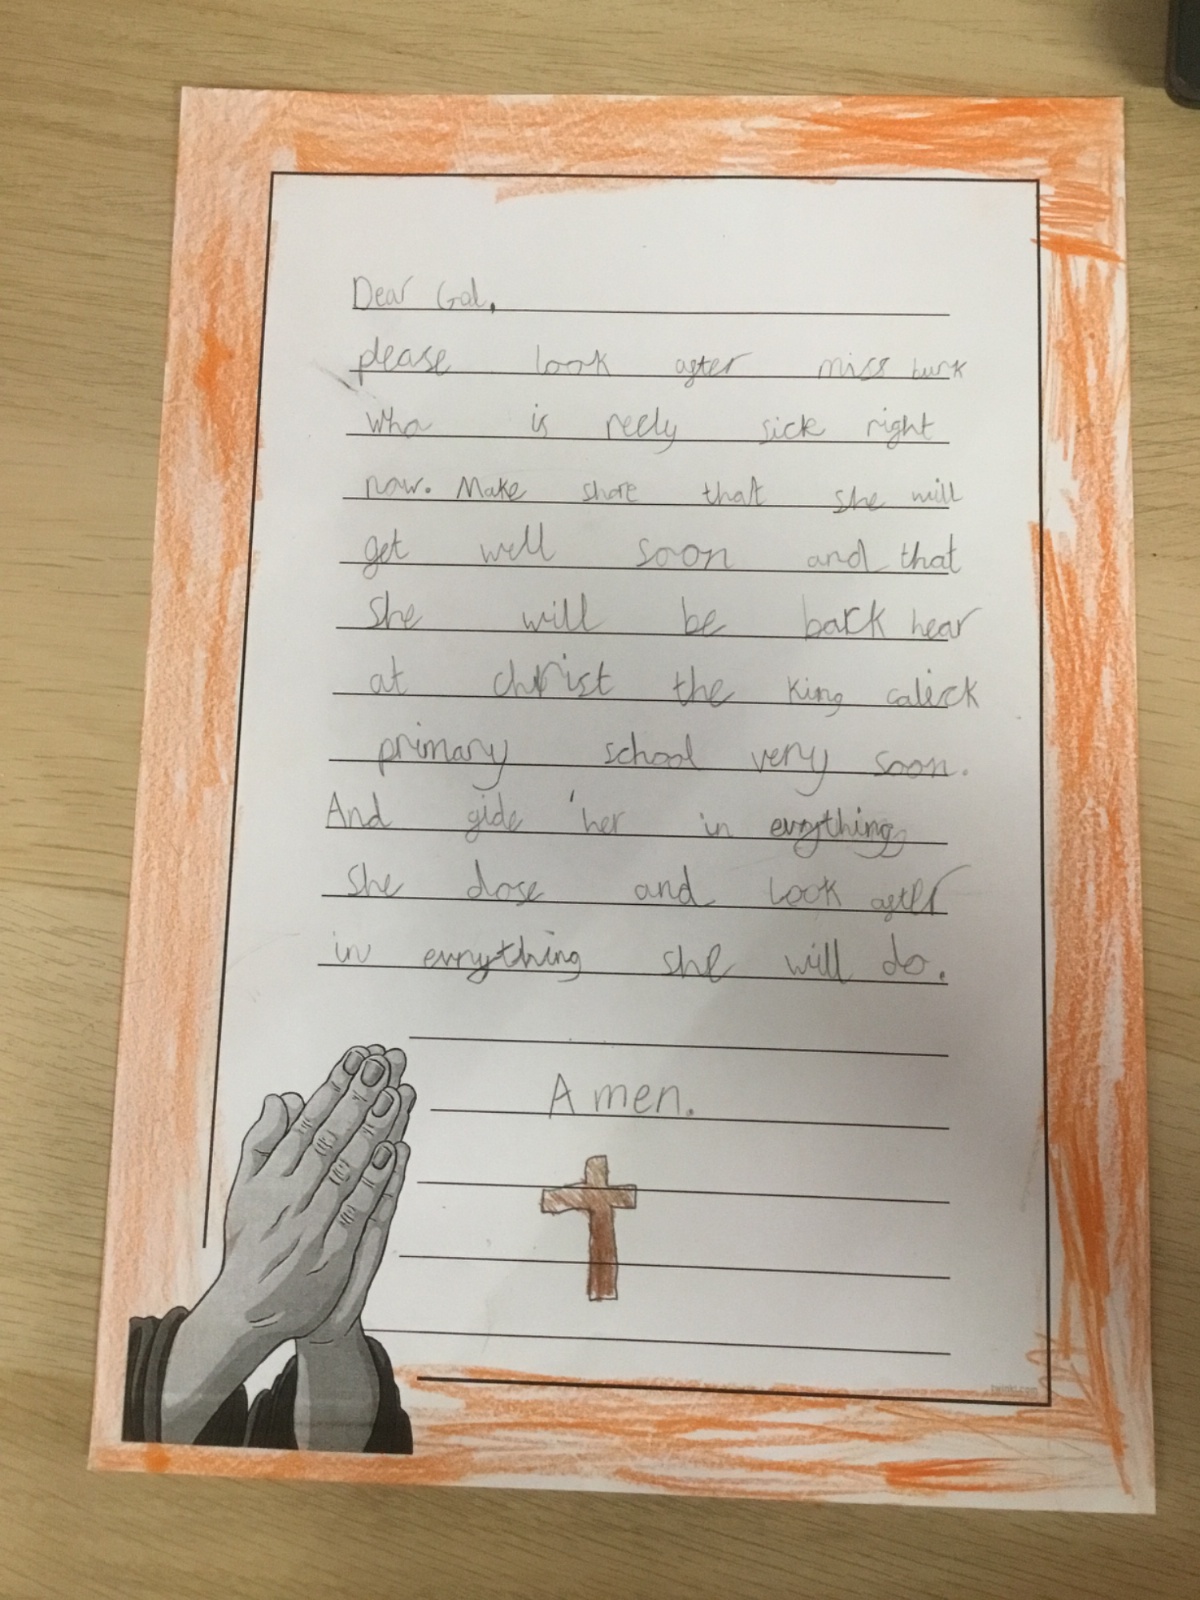 Dear God,
please look after miss burk
who is reely sick right
now. Make shore that she will
get well soon and that
she will be back hear
at christ the king calick
primary school very soon.
And gide her in evrything
she dose and look after
in evrything she will do.
Amen.